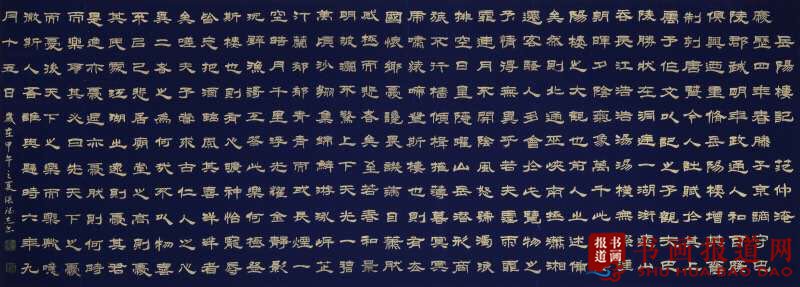 岳陽樓記 范仲淹
慶曆四年春滕子京謫守巴
陵郡越明年政通人和百廢
俱興乃重修岳陽樓增其舊
制刻唐賢今人詩賦于其上
屬予作文以記之予觀夫巴
陵勝狀在洞庭一湖銜遠山
吞長江浩浩湯湯橫無際涯
朝暉夕陰氣象萬千此則岳
陽樓之大觀也前人之述備
矣然則北通巫峽南極瀟湘
遷客騷人多會於此覽物之
情得無異乎若夫霪雨霏
霏連月不開陰風怒號濁浪
排空日星隱耀山岳潛形商
旅不行檣傾楫摧薄暮冥冥
虎嘯猿啼登斯樓也則有去
國懷鄉憂讒畏譏滿目蕭然
感極而悲者矣至若春和景
明波瀾不驚上下天光一碧
萬頃沙鷗翔集錦鱗游泳岸芷
汀蘭郁郁青青而或長煙一
空皓月千里浮光躍金靜影
沉璧漁歌互答此樂何極登
斯樓也則有心曠神怡寵辱
偕忘把酒臨風其喜洋洋者
矣嗟夫予嘗求古仁人之心
或異二者之為何哉不以物喜
不以己悲居廟堂之高則憂
其民處江湖之遠則憂其君
是進亦憂退亦憂然則何時
而樂耶其必曰先天下之憂
而憂後天下之樂而樂乎噫
微斯人吾誰與歸時六年九
月十五日 歲在甲午之夏
书画报道
书画报道网
SHU HUA BAO DAO WANG